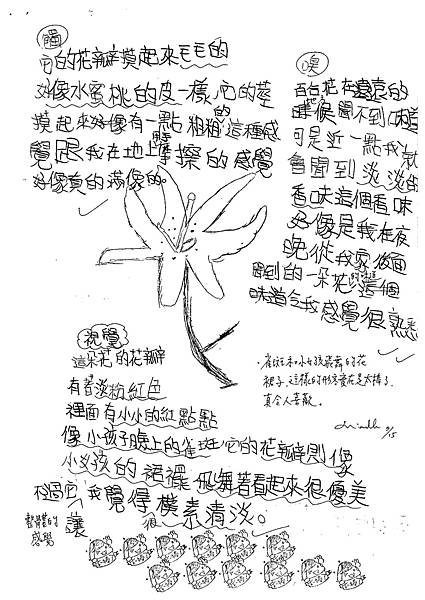 觸
它的花瓣摸起來毛毛的
好像水蜜桃的皮一樣,它的莖
摸起來好像有一點粗粗的這種感
覺跟我在地上摩擦的感覺
好像真的滿像的。
嗅
百合花在遠遠的
時候聞不到味道
可是近一點我就
會聞到淡淡的
香味這個香味
好像是我在夜
晚從我家後面
聞到的一朵花這個
味道令我感覺很熟悉
視覺
這朵花的花瓣
有著淡粉紅色
裡面有小小的紅點點
像小孩子臉上的雀斑,它的花瓣則像
小女孩的裙襬飛舞著看起來很優美
不過它
整體的
感覺
讓我覺得很樸素清淡。
雀斑和小女孩飛舞的花
裙子,這樣的形容實在是太棒了,
真令人喜歡。
9/15